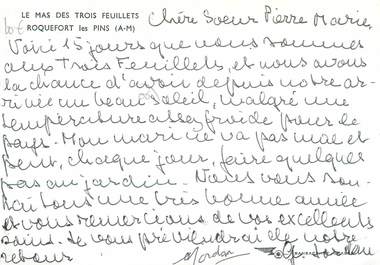 LE MAS DES TROIS FEUILLETS
ROQUEFORT les PINS (A-M)
Chère Soeur Pierre Marie,
Voici 15 jours que nous sommes
aux Trois Feuillets, et nous avons
la chance d'avoir depuis notre ar-
rivée un beau Soleil, malgré une
température assez froide pour le
pays. Mon mari ne va pas mal et
peut, chaque jour, faire quelques
pas au jardin. Nous vous sou-
haitons une très bonne année
et vous remercions de vos excellents
soins. Je vous préviendrai de notre
retour